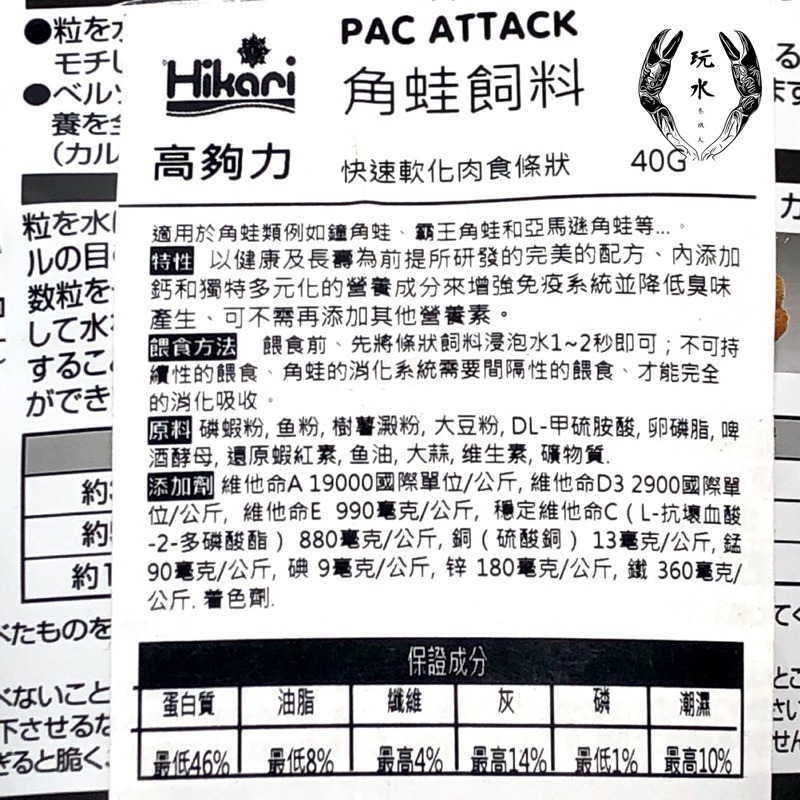 ●粒を水
モチし
●ベルツ
養を全
(カル
粒を水
ルの目
数粒を
して水
するこ
ができ
約
約
約1
べたものを
べないこと
下させるた
ぎると脆く、
PAC ATTACK
Hikari
角蛙飼料
玩水
高夠力
快速軟化肉食條狀
40G
適用於角蛙類例如鐘角蛙、霸王角蛙和亞馬遜角蛙等...。
特性 以健康及長壽為前提所研發的完美的配方、內添加
鈣和獨特多元化的營養成分來增強免疫系統並降低臭味
產生、可不需再添加其他營養素。
餵食方法 餵食前、先將條狀飼料浸泡水1~2秒即可；不可持
續性的餵食、角蛙的消化系統需要間隔性的餵食、才能完全
的消化吸收。
原料 磷蝦粉, 鱼粉, 樹薯澱粉, 大豆粉, DL-甲硫胺酸, 卵磷脂, 啤
酒酵母, 還原蝦紅素, 鱼油, 大蒜, 维生素, 礦物質.
添加劑 維他命A 19000國際單位/公斤, 維他命D3 2900國際單
位/公斤, 維他命E 990毫克/公斤, 穩定維他命C ( L-抗壞血酸
-2-多磷酸酯 ) 880毫克/公斤, 銅 ( 硫酸銅 ) 13毫克/公斤, 錳
90毫克/公斤, 碘 9毫克/公斤, 锌 180毫克/公斤, 鐵 360毫克/
公斤. 着色劑.
保證成分
蛋白質 油脂 纖維 灰 磷 潮濕
最低46% 最低8% 最高4% 最高14% 最低1% 最高10%